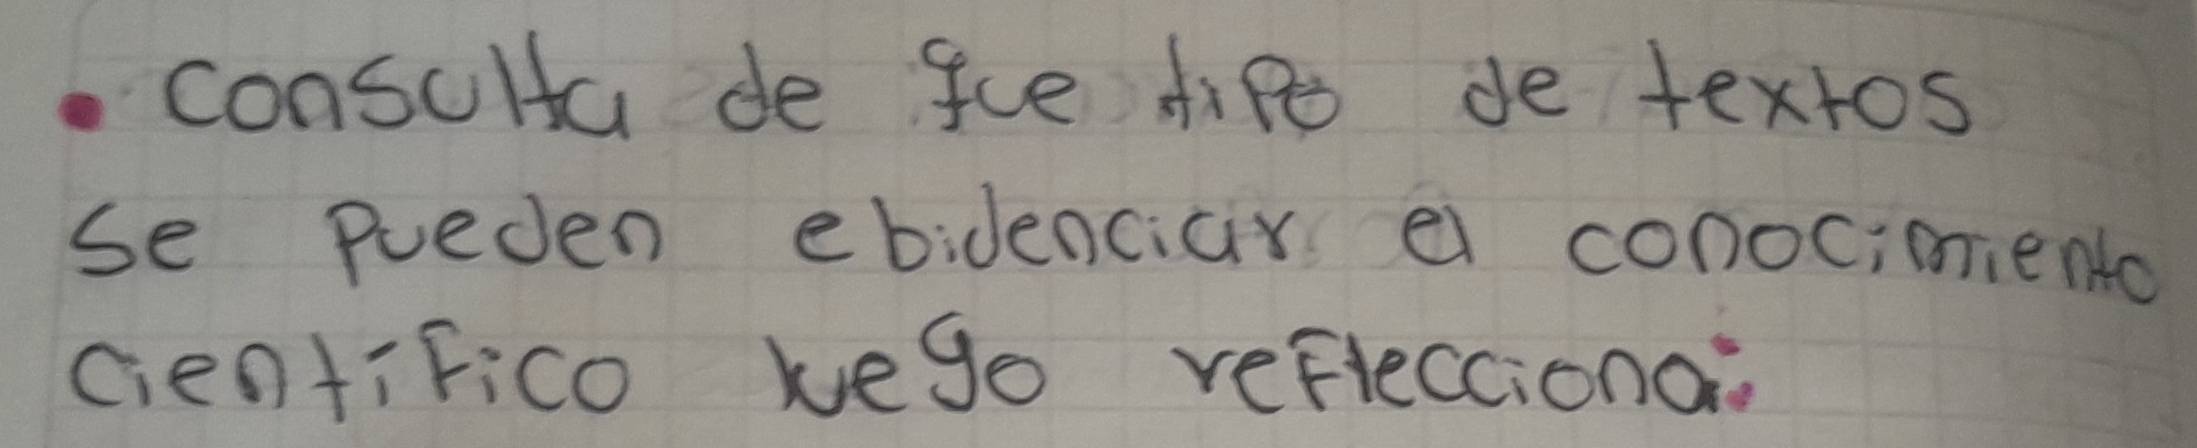 • consulta de que tipo de textos
se pueden ebidenciar el conocimiento
científico luego reflecciona: